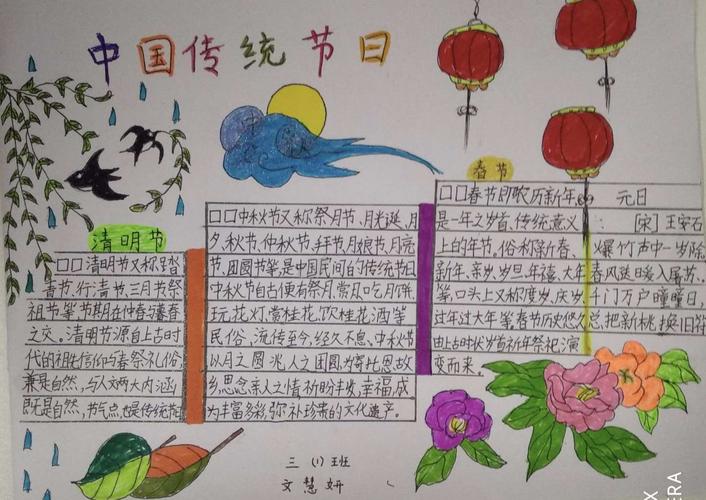 中国传统节日
清明节
□□清明节又称踏
青节、行清节、三月节、祭
祖节等,节期在仲春与暮春
之交。清明节源自上古时
代的祖先信仰与春祭礼俗,
兼具自然与人文两大内涵,
既是自然节气点,也是传统
□□中秋节又称祭月节、月光诞、月
夕、秋节、仲秋节、拜节、月娘节、月亮
节、团圆节等,是中国民间的传统节日
中秋节自古便有祭月、赏月、吃月饼、
玩花灯、赏桂花、饮桂花酒等
民俗,流传至今,经久不息。中秋节
以月之圆兆人之团圆,为寄托思故
乡,思念亲人之情,祈盼丰收,幸福,成
为丰富多彩,弥补珍贵的文化遗产。
春节
□□春节即农历新年,
是一年之岁首、传统意义
上的年节。俗称新春、
新年、新岁、岁旦、年禧、大年
等,口头上又称度岁、庆岁、
过年、过大年等。春节历史悠久,
由上古时代岁首祈年祭祀演
变而来。
元日
[宋]王安石
爆竹声中一岁除
春风送日暖入屠苏。
千门万户曈曈日,
总把新桃换旧符
三(1)班
文慧妍
X
ERA